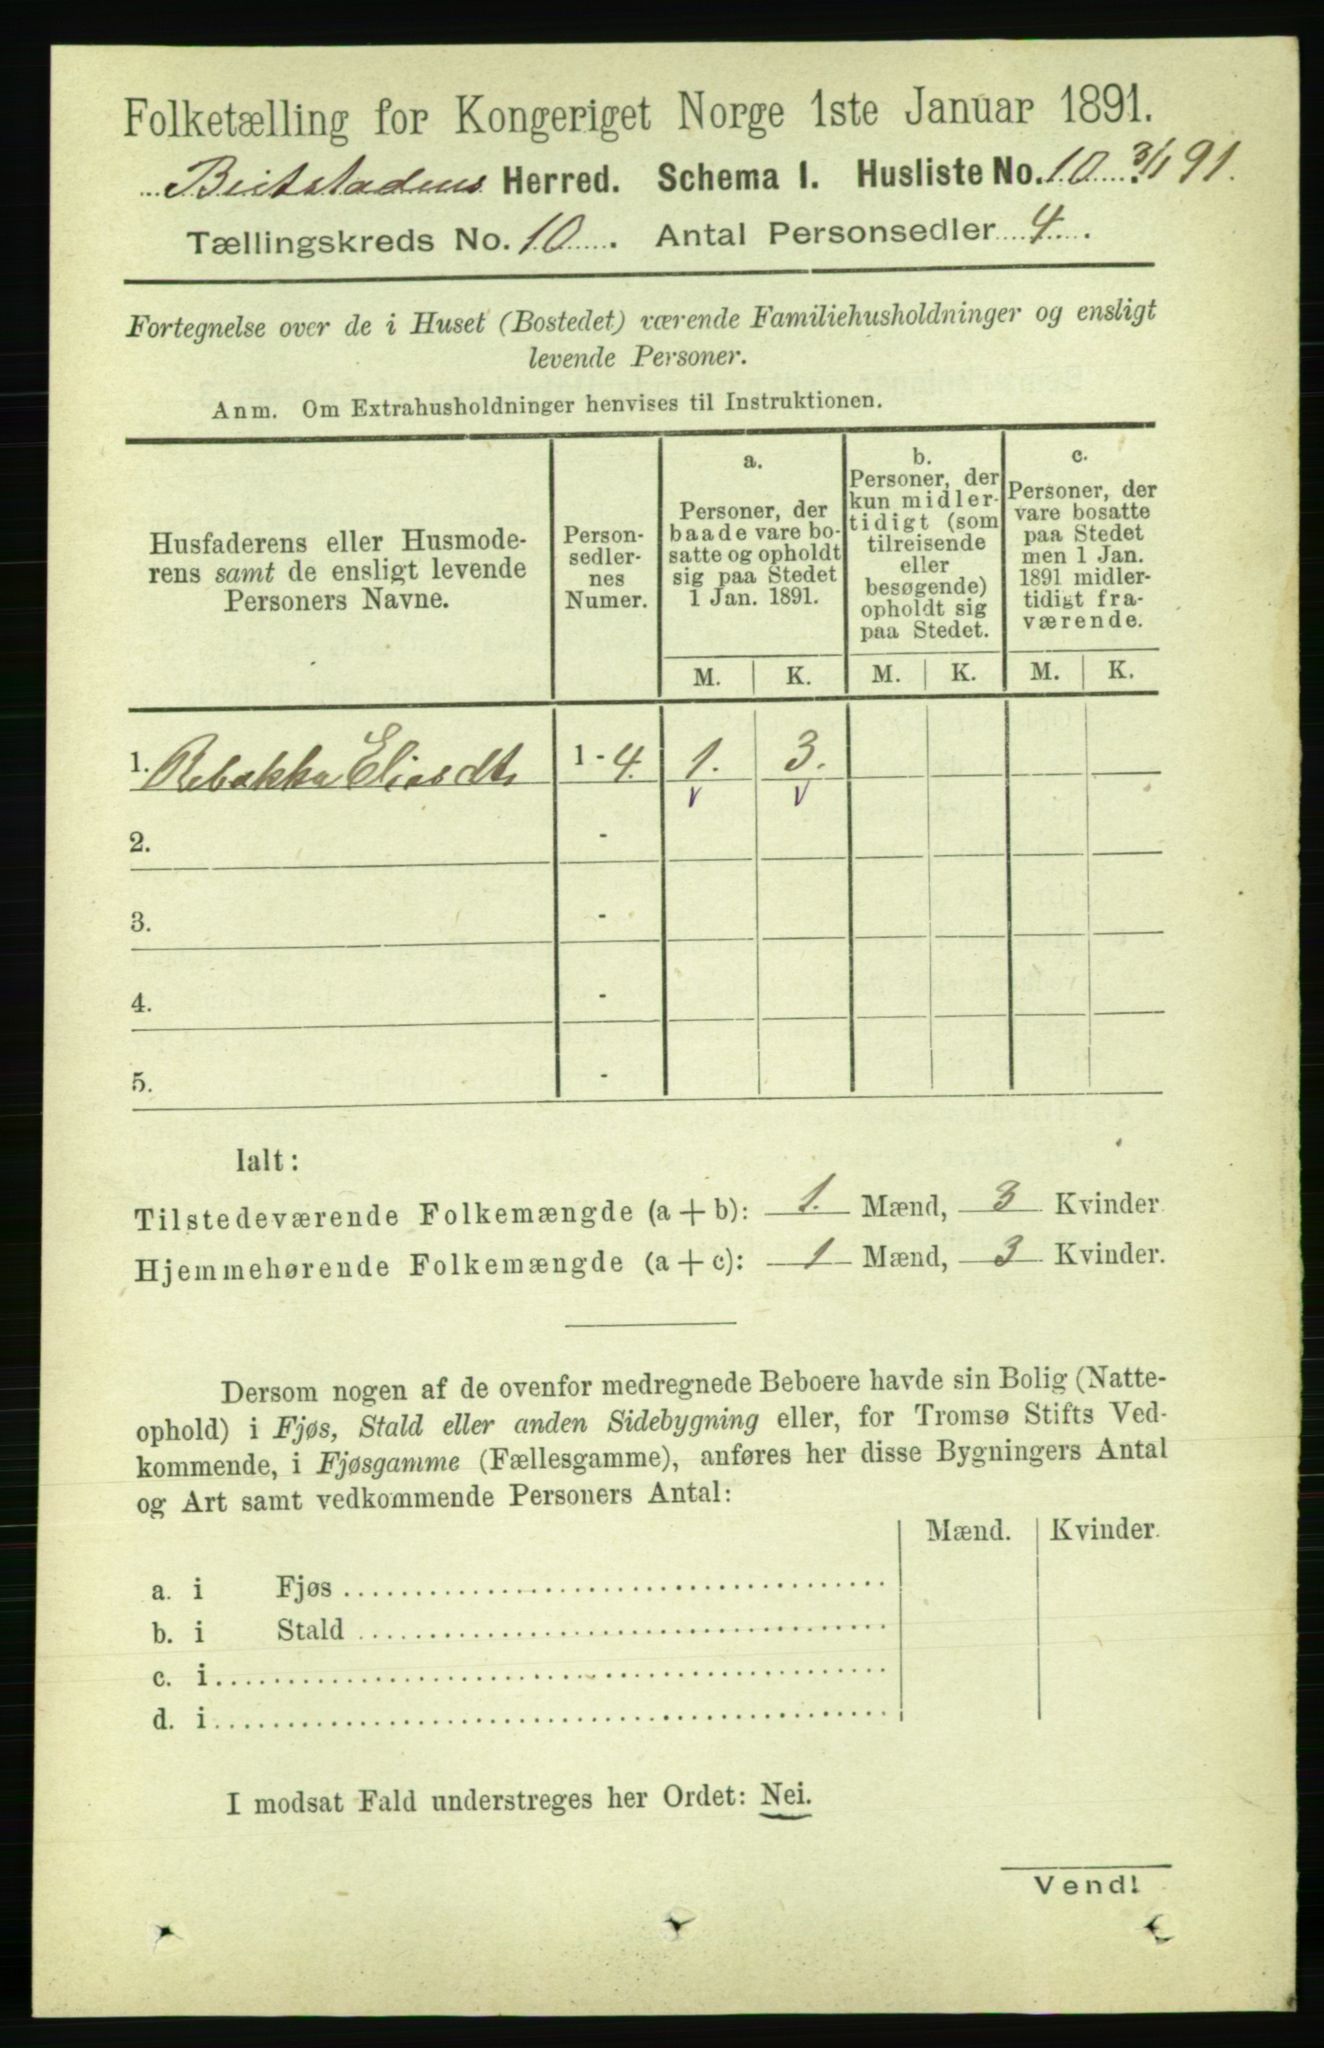 Folketælling for Kongeriget Norge 1ste Januar 1891.
Beitstadens Herred. Schema I. Husliste No. 10 3/1 91.
Tællingskreds No. 10. Antal Personsedler 4.
Fortegnelse over de i Huset (Bostedet) værende Familiehusholdninger og ensligt
levende Personer.
Anm. Om Extrahusholdninger henvises til Instruktionen.
Husfaderens eller Husmode-
rens samt de ensligt levende
Personers Navne.
Person-
sedler-
nes
Numer.
a.
Personer, der
baade vare bo-
satte og opholdt
sig paa Stedet
1 Jan. 1891.
b.
Personer, der
kun midler-
tidigt (som
tilreisende
eller
besøgende)
opholdt sig
paa Stedet.
c.
Personer, der
vare bosatte
paa Stedet
men 1 Jan.
1891 midler-
tidigt fra-
værende.
M. K. M. K. M. K.
1. Rebekka Eliasdt. 1 - 4. 1. 3.
2. -
3. -
4. -
5. -
Ialt:
Tilstedeværende Folkemængde (a + b): 1. Mænd, 3 Kvinder
Hjemmehørende Folkemængde (a + c): 1 Mænd, 3 Kvinder.
Dersom nogen af de ovenfor medregnede Beboere havde sin Bolig (Natte-
ophold) i Fjøs, Stald eller anden Sidebygning eller, for Tromsø Stifts Ved-
kommende, i Fjøsgamme (Fællesgamme), anføres her disse Bygningers Antal
og Art samt vedkommende Personers Antal:
Mænd. Kvinder.
a. i Fjøs
b. i Stald
c. i
d. i
I modsat Fald understreges her Ordet: Nei.
Vend!